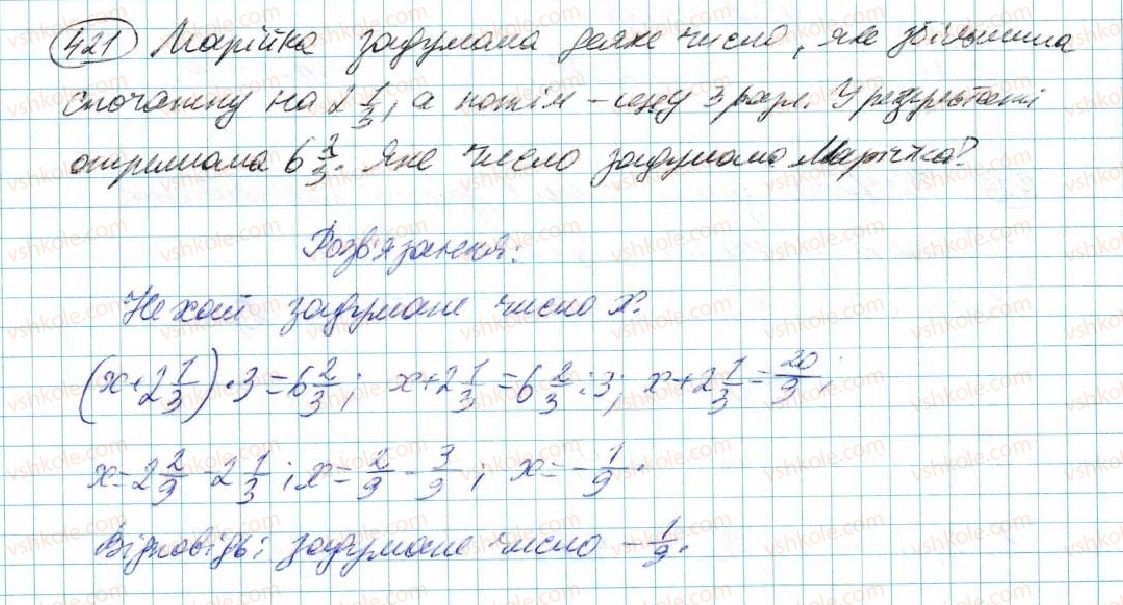 421 Марійка задумала деяке число, яке збільшила
спочатку на 2 1/3, а потім – ще у 3 рази. У результаті
отримала 6 2/3. Яке число задумала Марічка?
Розв'язання:
Нехай задумане число x.
(x+2 1/3)·3=6 2/3; x+2 1/3=6 2/3:3; x+2 1/3=20/9;
x=2 2/9-2 1/3; x=2/9-3/9; x=-1/9.
Відповідь: задумане число -1/9.
vshkole.com